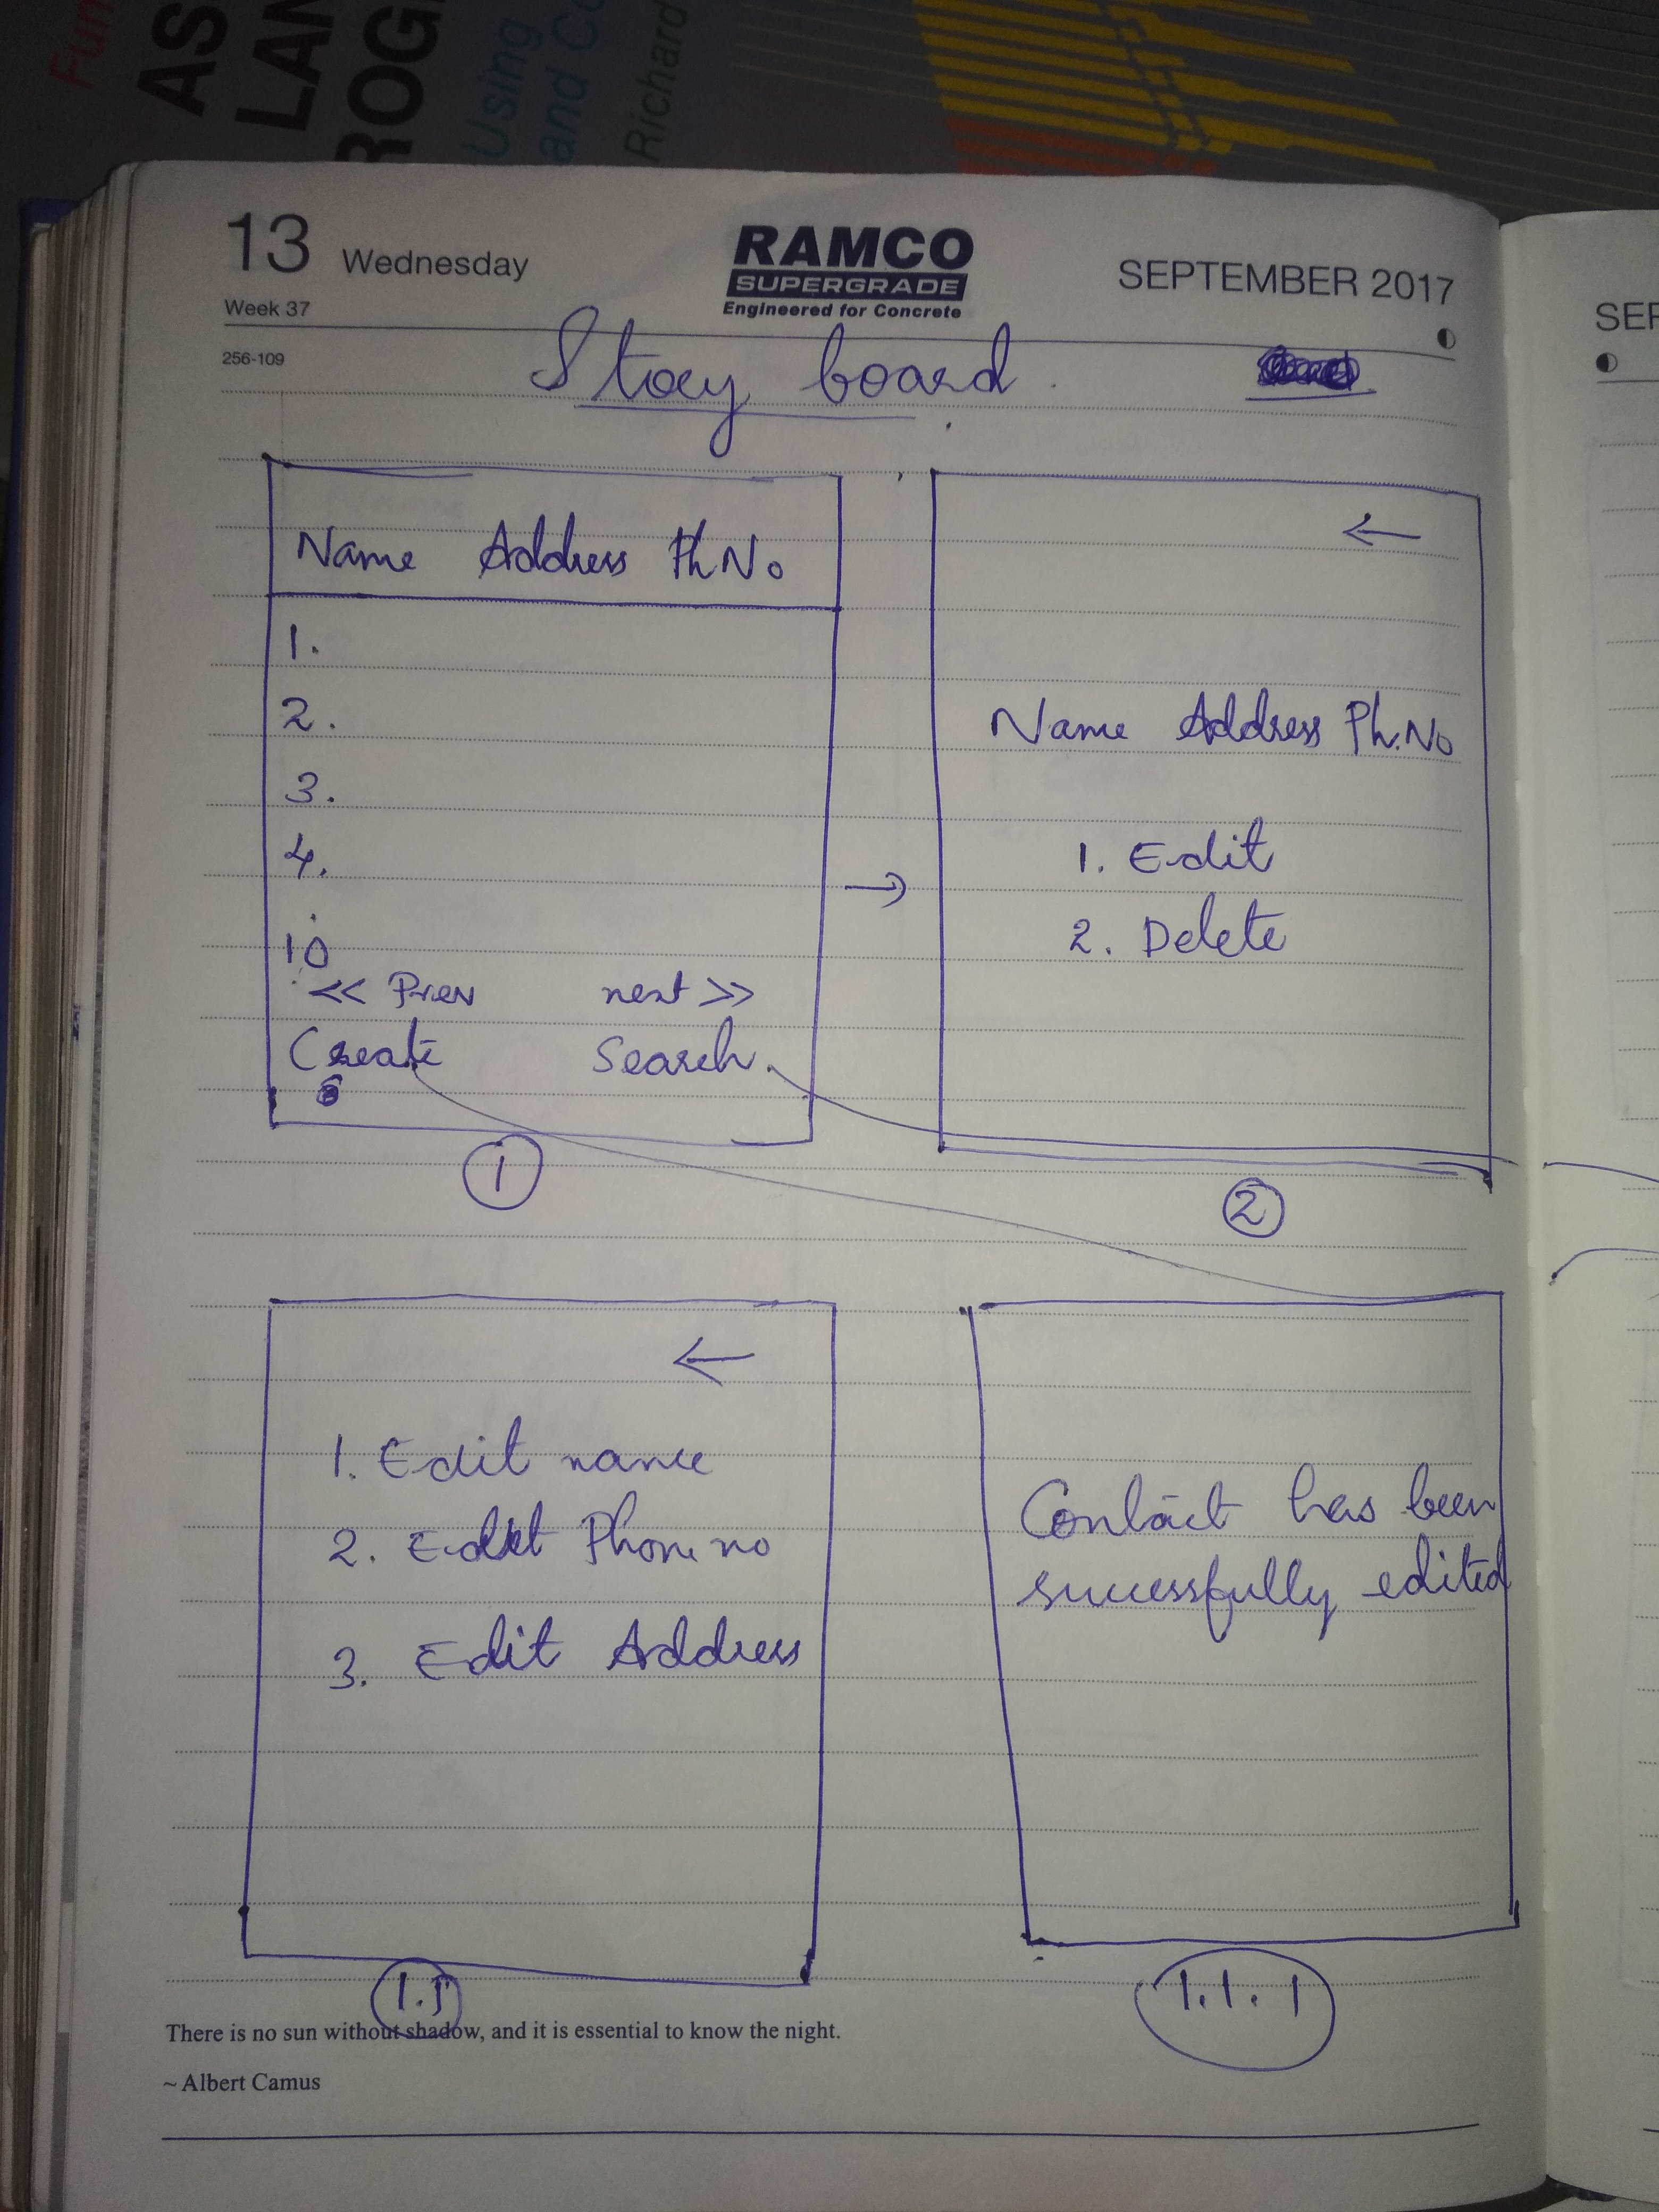 Fun
AS
LAN
ROG
Using
and Co
Richard
13 Wednesday
Week 37
256-109
RAMCO
SUPERGRADE
Engineered for Concrete
SEPTEMBER 2017
SEP
Story board
Name Address Ph No
1.
2.
3.
4.
10
<< Prev next >>
Create Search
1
←
Name Address Ph.No
1. Edit
2. Delete
2
←
1. Edit name
2. Edit Phone no
3. Edit Address
1.1
Contact has been
successfully edited
1.1.1
There is no sun without shadow, and it is essential to know the night.
~ Albert Camus